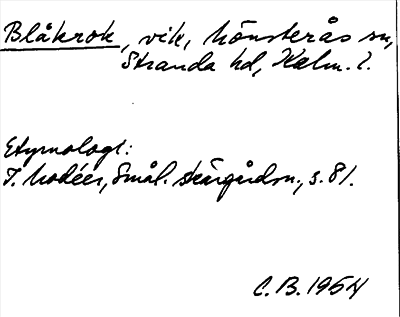 Blåkrok, vik, Mönsterås sn,
Stranda hd, Kalm. l.
Etymologi:
I. Modéer, Smål. skärgårdsn., s. 81.
C.B. 1954